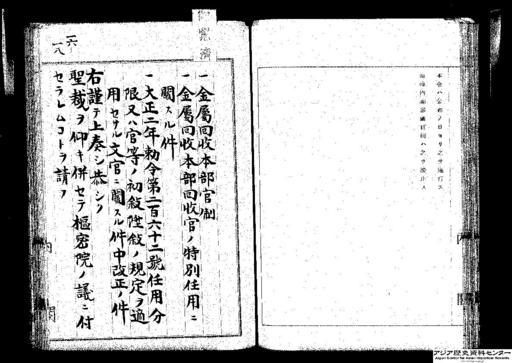 御覧済
一金屬回收本部官制
一金屬回收本部回收官ノ特別任用ニ
關スル件
一大正二年勅令第二百六十二號任用分
限又ハ官等ノ初敍陞敍ノ規定ヲ適
用セサル文官ニ關スル件中改正ノ件
右謹テ上奏シ恭シク
聖裁ヲ仰キ併セテ樞密院ノ議ニ付
セラレムコトヲ請フ
一六
一八
本令ハ公布ノ日ヨリ之ヲ施行ス
アジア歴史資料センター
Japan Center for Asian Historical Records